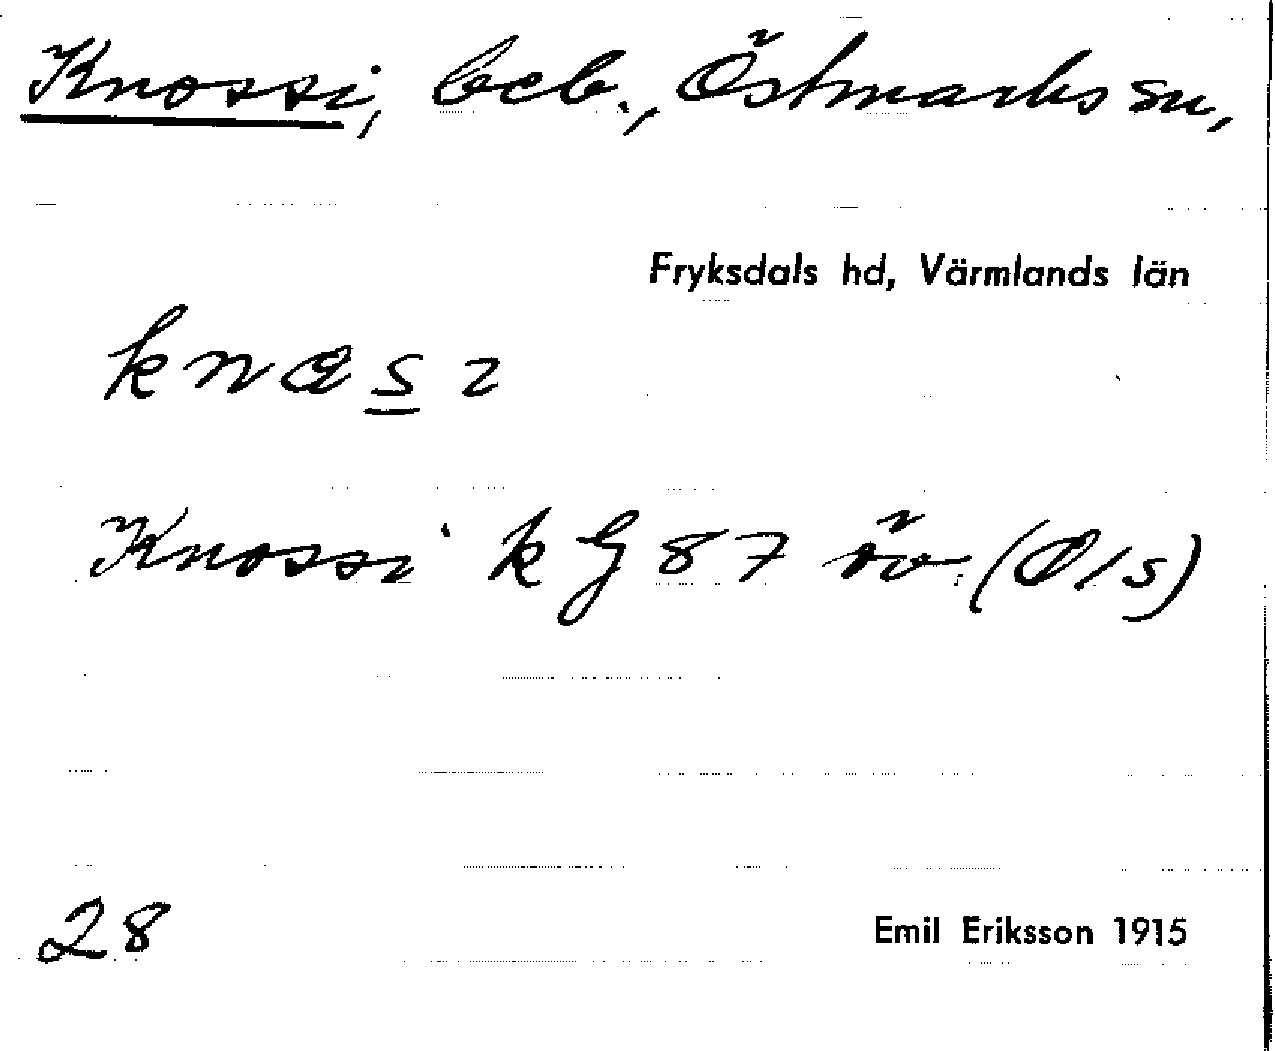 Knossi, beb., Östmarks sn,
Fryksdals hd, Värmlands län
Knossi k G 87 öv. (O/s)
28
Emil Eriksson 1915